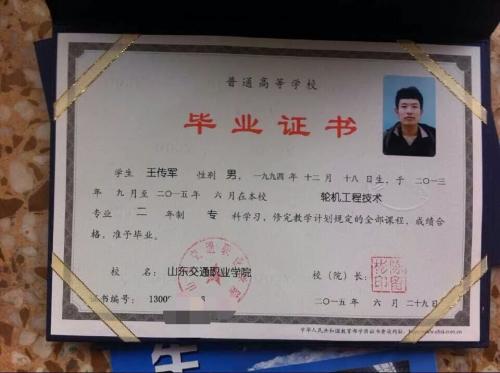 普通高等学校
毕业证书
学生 王传军 性别 男,一九九四年 十二月 十八日生,于 二〇一三
年 九月至 二〇一五年 六月在本校 轮机工程技术
专业 二 年制 专 科学习,修完教学计划规定的全部课程,成绩合
格,准予毕业。
校 名: 山东交通职业学院 校(院)长:
证书编号: 1300
二〇一五年 六月 二十九日
中华人民共和国教育部学历证书查询网址: